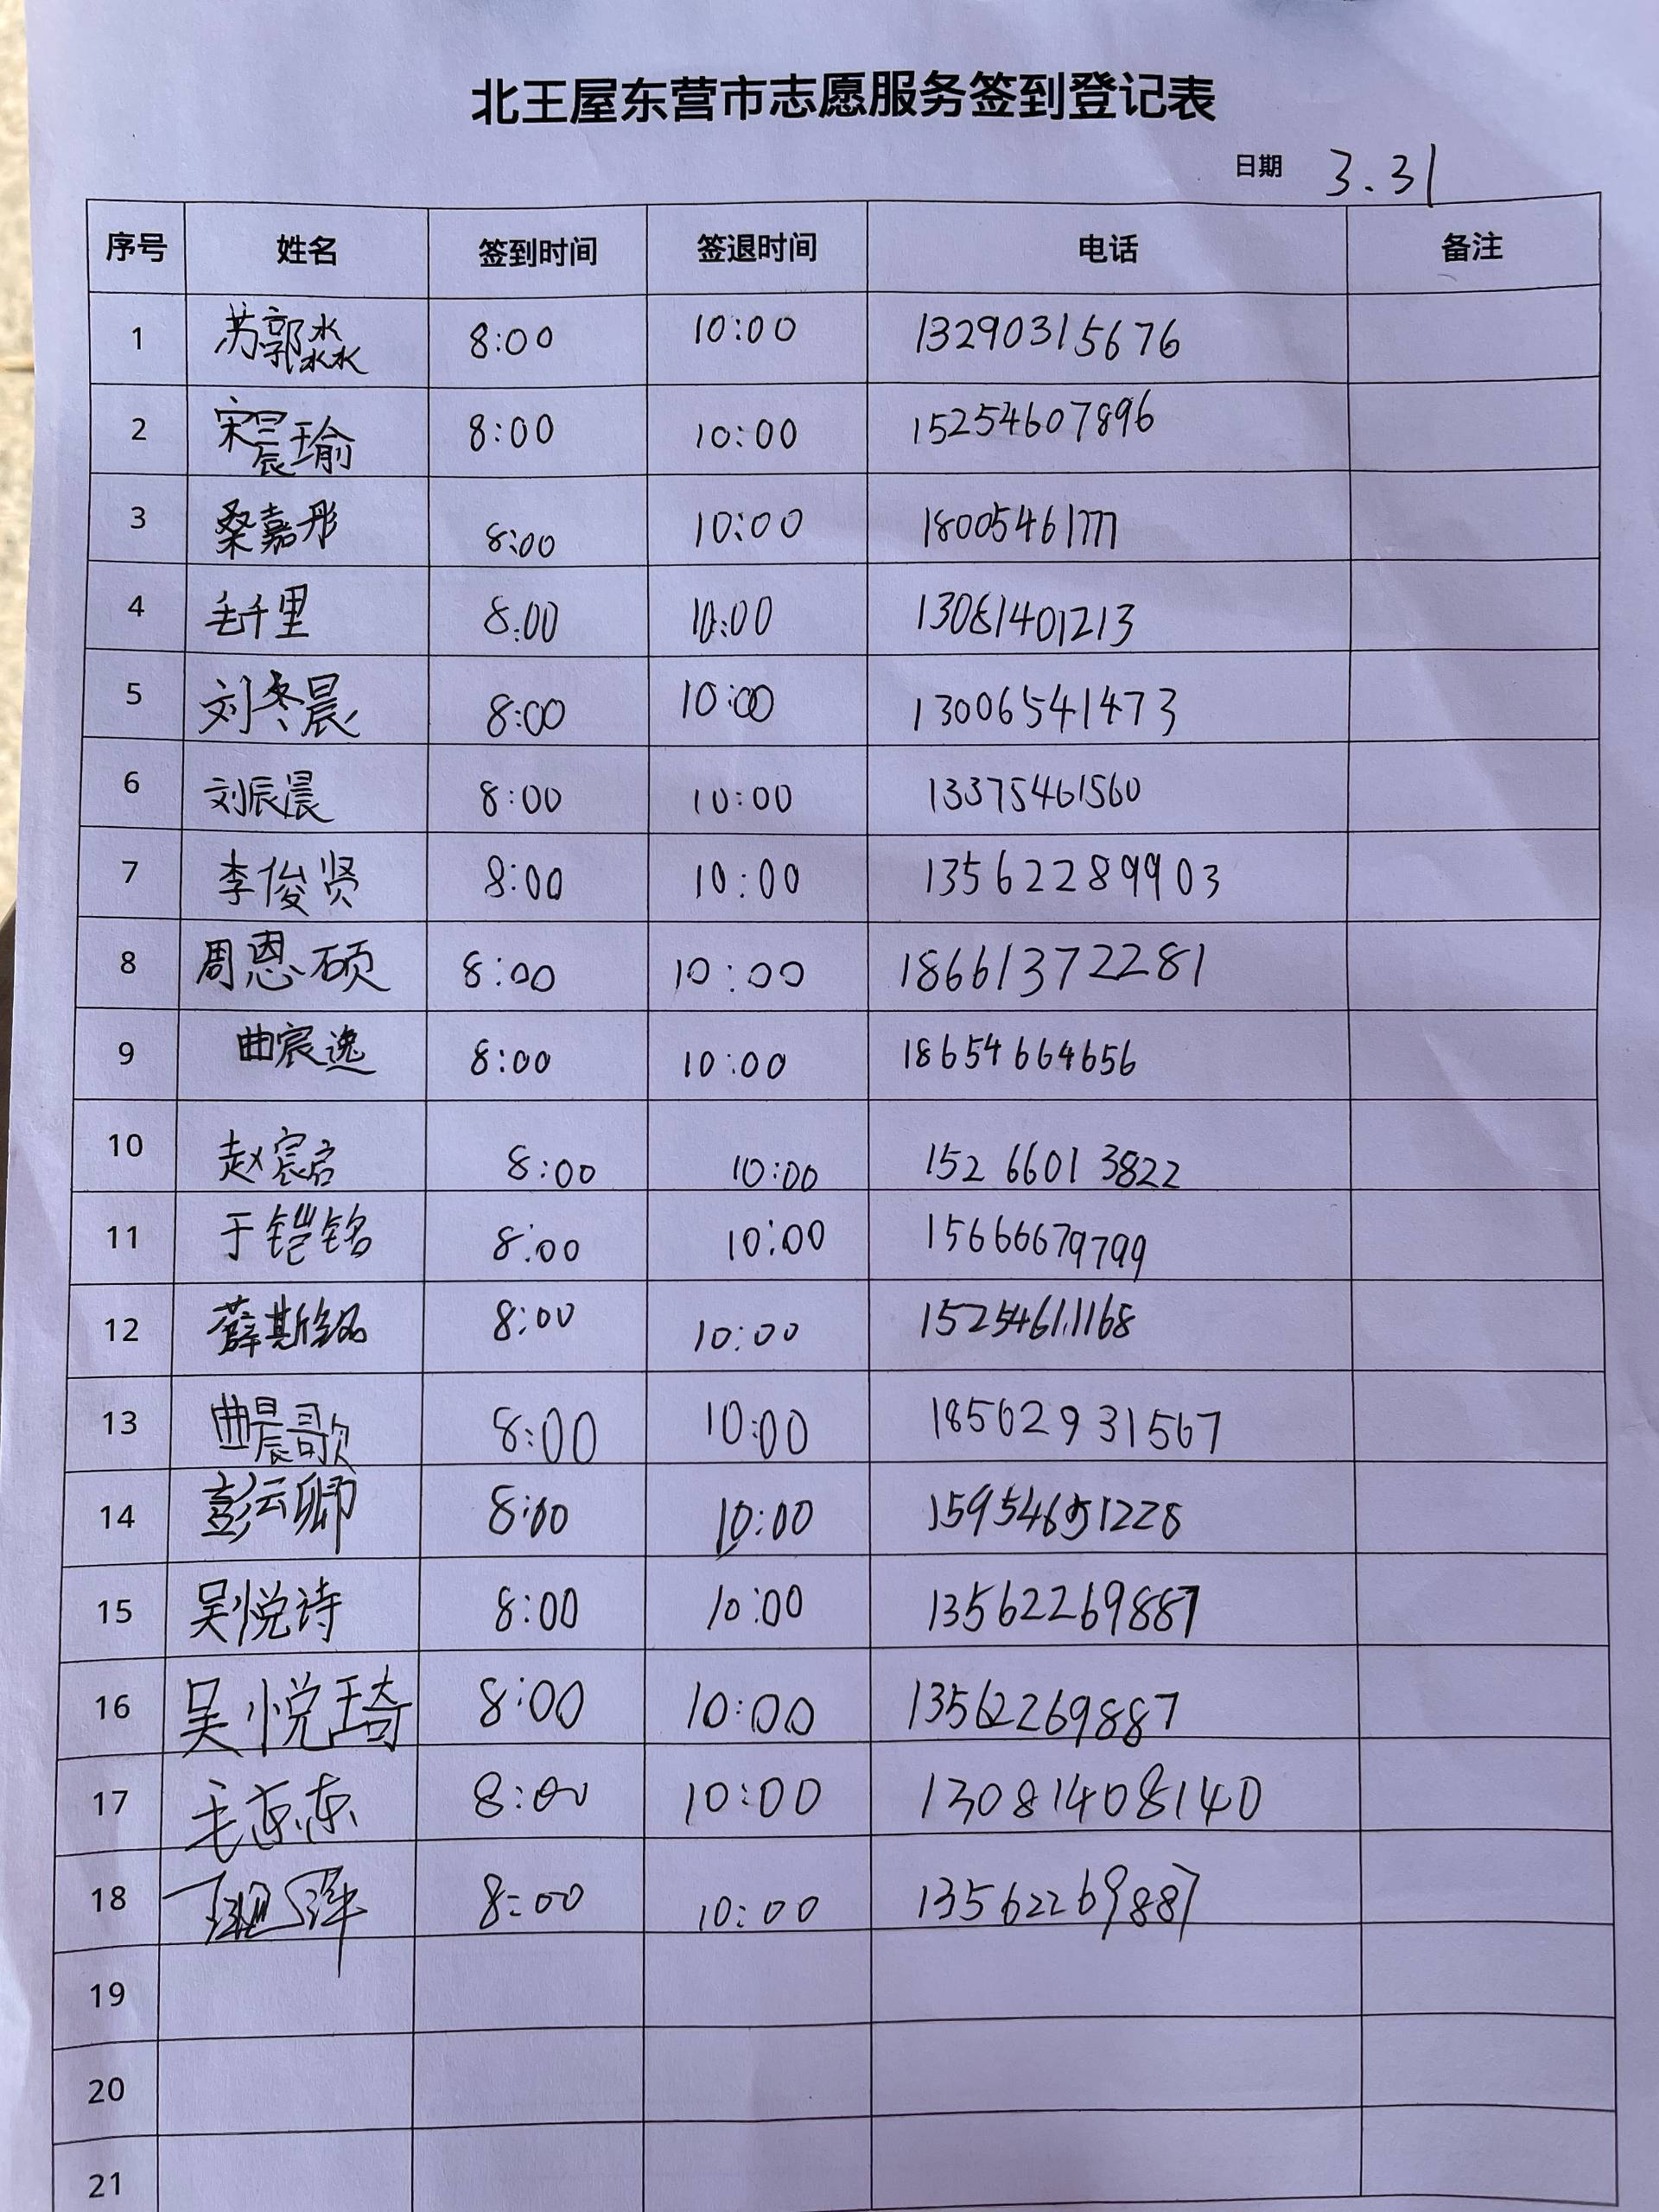 北王屋东营市志愿服务签到登记表
日期 3.31
序号 姓名 签到时间 签退时间 电话 备注
1 苏郭淼 8:00 10:00 13290315676
2 宋晨瑜 8:00 10:00 15254607896
3 桑嘉彤 8:00 10:00 18005461777
4 毛千里 8:00 10:00 13081401213
5 刘冬晨 8:00 10:00 13006541473
6 刘辰晨 8:00 10:00 13375461560
7 李俊贤 8:00 10:00 13562289903
8 周恩硕 8:00 10:00 18661372281
9 曲宸逸 8:00 10:00 18654664656
10 赵宸启 8:00 10:00 152 6601 3822
11 于铠铭 8:00 10:00 15666679799
12 薛斯铭 8:00 10:00 15254611168
13 曲晨歌 8:00 10:00 18562931567
14 彭云卿 8:00 10:00 15954651228
15 吴悦诗 8:00 10:00 13562269887
16 吴悦琦 8:00 10:00 13562269887
17 毛东东 8:00 10:00 13081408140
18 8:00 10:00 13562269887
19
20
21